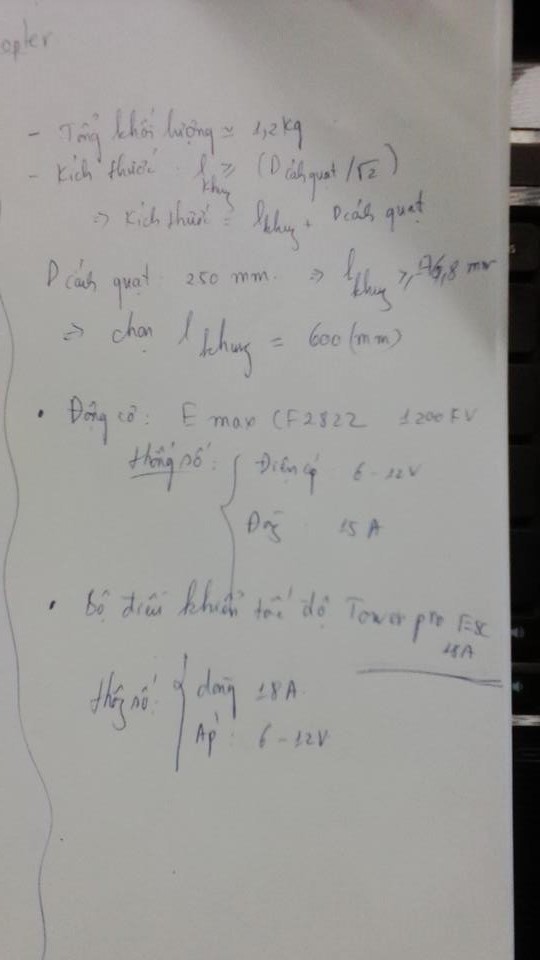 opter
- Tổng khối lượng ≃ 1,2 kg
- Kích thước : l khung ≥ (D cánh quạt /√2)
⇒ Kích thước = l khung + D cánh quạt
D cánh quạt : 250 mm. ⇒ l khung ≥ 176,8 mm
⇒ chọn l khung = 600 (mm)
• Động cơ : E max CF2822 1200 KV
thông số : Điện áp 6 - 12V
Dòng 15 A
• Bộ điều khiển tốc độ Tower pro ESC
18A
thông số : dòng 18A.
Áp : 6 - 12V